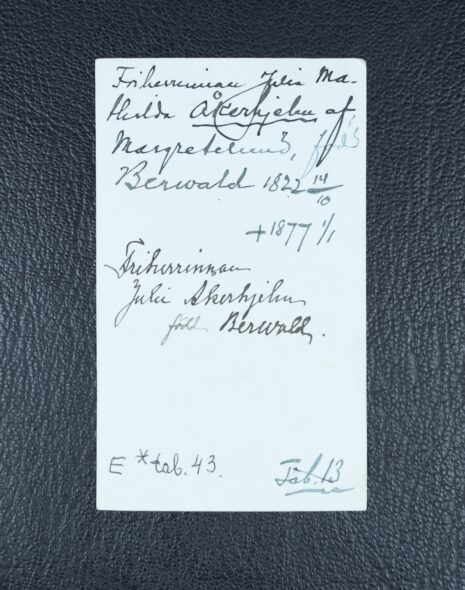 Friherrinnan Julia Ma-
thilda Åkerhjelm af
Margretelund, född
Berwald 1822 14/10
+1877 1/1
Friherrinnan
Julie Åkerhjelm
född Berwald.
E *tab. 43.
Tab. 13